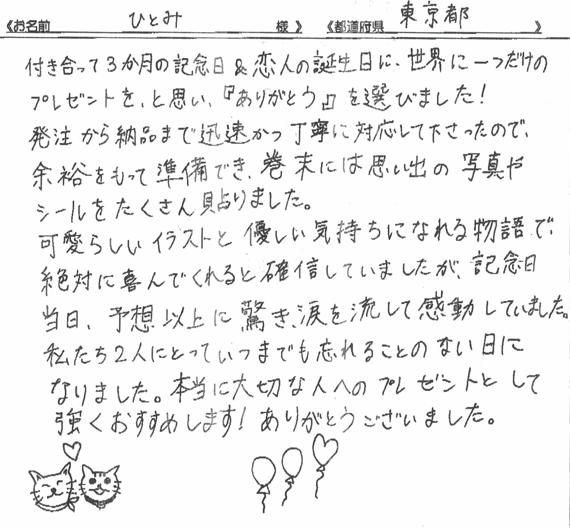 《お名前 ひとみ 様 》 《都道府県 東京都 》
付き合って3か月の記念日&恋人の誕生日に、世界に一つだけの
プレゼントを、と思い、『ありがとう』を選びました!
発注から納品まで迅速かつ丁寧に対応して下さったので、
余裕をもって準備でき、巻末には思い出の写真や
シールをたくさん貼りました。
可愛らしいイラストと優しい気持ちになれる物語で、
絶対に喜んでくれると確信していましたが、記念日
当日、予想以上に驚き、涙を流して感動していました。
私たち2人にとっていつまでも忘れることのない日に
なりました。本当に大切な人へのプレゼントとして
強くおすすめします!ありがとうございました。